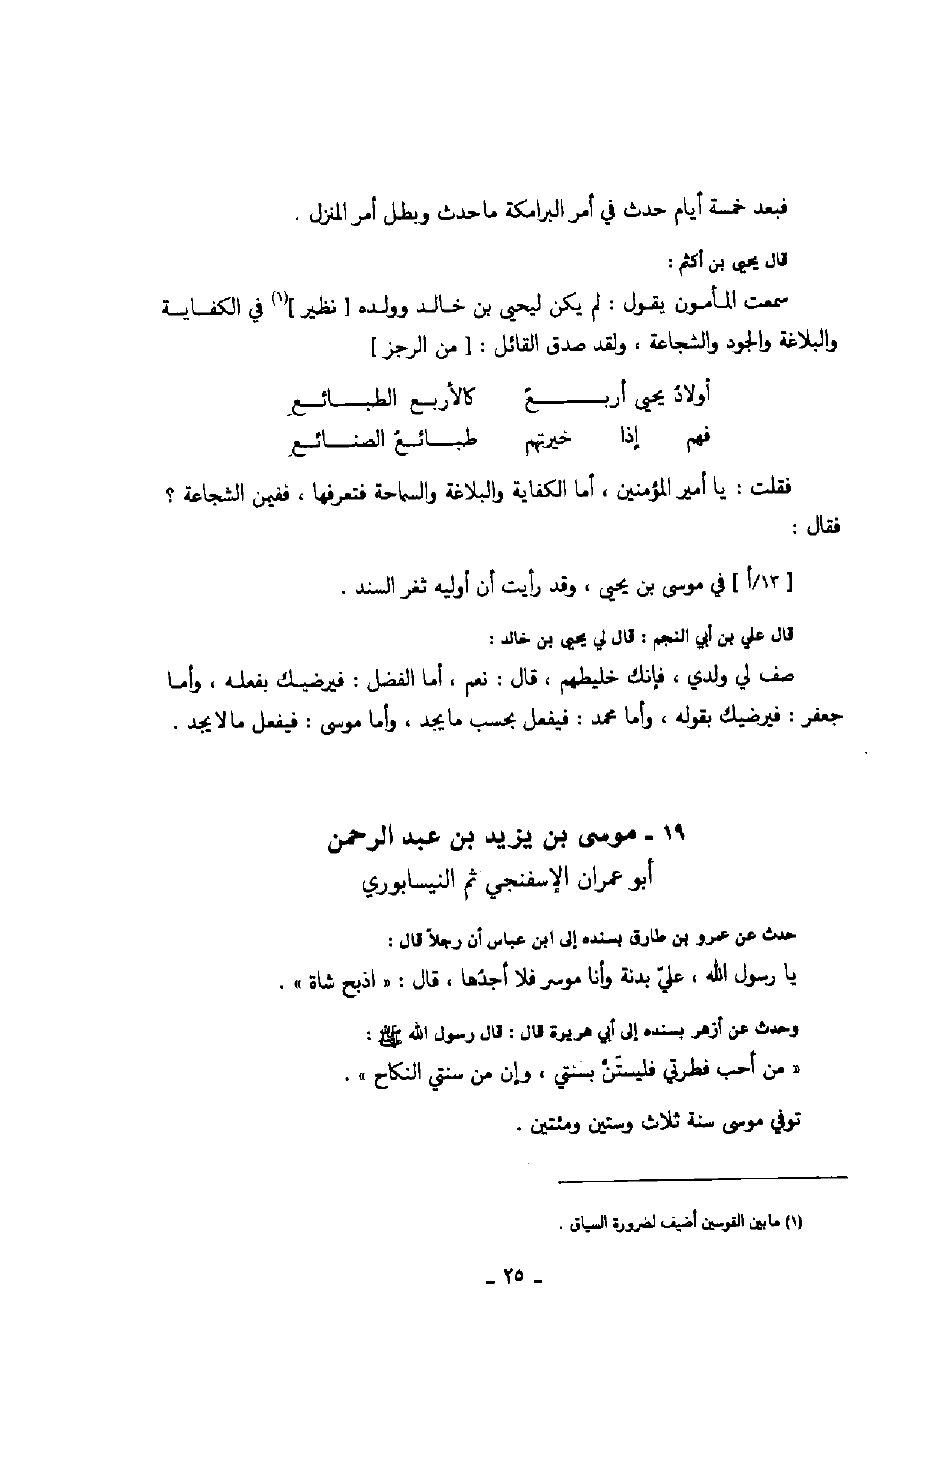 فبعد خمسة أيام حدث في أمر البرامكة ماحدث وبطل أمر المنزل .
قال يحيى بن أكثم :
سمعت المأمون يقول : لم يكن ليحيى بن خالد وولده [ نظير ](١) في الكفاية
والبلاغة والجود والشجاعة ، ولقد صدق القائل : [ من الرجز ]
أولادُ يحيى أربـعٌ كالأربع الطبـائـعِ
فهم إذا خبرتهم طبـائـعُ الصنـائـعِ
فقلت : يا أمير المؤمنين ، أما الكفاية والبلاغة والسماحة فتعرفها ، ففيمن الشجاعة ؟
فقال :
[ ١٣/أ ] في موسى بن يحيى ، وقد رأيت أن أوليه ثغر السند .
قال علي بن أبي النجم : قال لي يحيى بن خالد :
صف لي ولدي ، فإنك خليطهم ، قال : نعم ، أما الفضل : فيرضيك بفعله ، وأما
جعفر : فيرضيك بقوله ، وأما محمد : فيفعل بحسب مايجد ، وأما موسى : فيفعل مالايجد .
١٩ ـ موسى بن يزيد بن عبد الرحمن
أبو عمران الإسفنجي ثم النيسابوري
حدث عن عمرو بن طارق بسنده إلى ابن عباس أن رجلاً قال :
يا رسول الله ، عليّ بدنة وأنا موسر فلا أجدُها ، قال : « اذبح شاة » .
وحدث عن أزهر بسنده إلى أبي هريرة قال : قال رسول الله ﷺ :
« من أحب فطرتي فليستَنْ بسنتي ، وإن من سنتي النكاح » .
توفي موسى سنة ثلاث وستين ومئتين .
(١) مابين القوسين أضيف لضرورة السياق .
ـ ٢٥ ـ